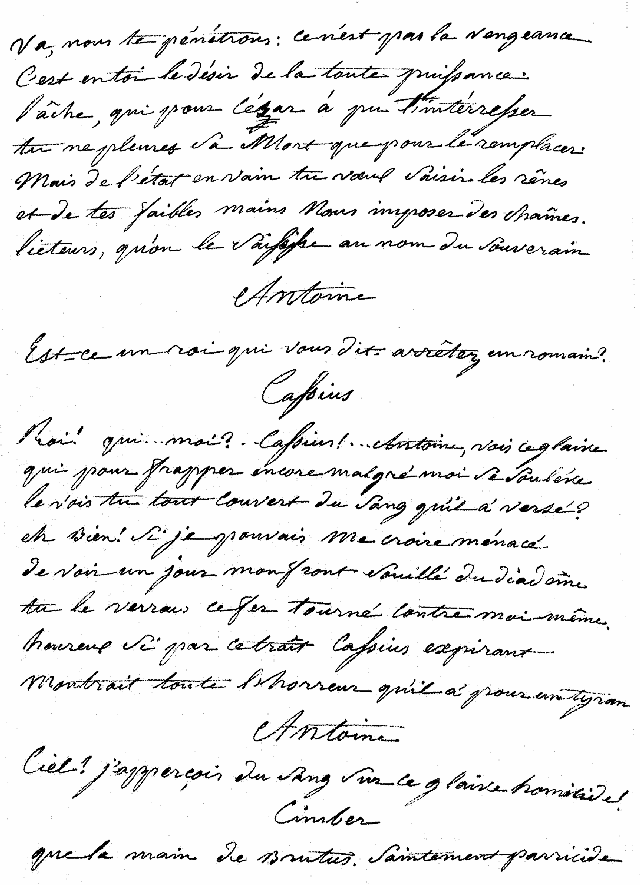 Va, nous te pénétrons: ce n'est pas la vengeance
C'est en toi le désir de la toute puissance:
l'âche, qui pour César à pu t'intérresser
tu ne pleures sa Mort que pour le remplacer:
Mais de l'état en vain tu veux saisir les rênes
et de tes faibles mains Nous imposer des chaînes.
licteurs, qu'on le saisisse au nom du souverain
Antoine
Est-ce un roi qui vous dit-arrêtez un romain?
Cassius
Roi! qui... moi?. Cassius!... Antoine, vois ce glaive
qui pour frapper encore malgré moi se soulève
le vois tu tout couvert du sang qu'il à versé?
eh Bien! si je pouvais me croire ménacé
de voir un jour mon front souillé du diadême
tu le verrais ce fer tourné contre moi-même.
heureux si par ce trait Cassius expirant
Montrait toute l'horreur qu'il à pour un tyran
Antoine
Ciel! j'apperçois du sang sur ce glaive homicide!
Cimber
que la main de Brutus. Saintement parricide